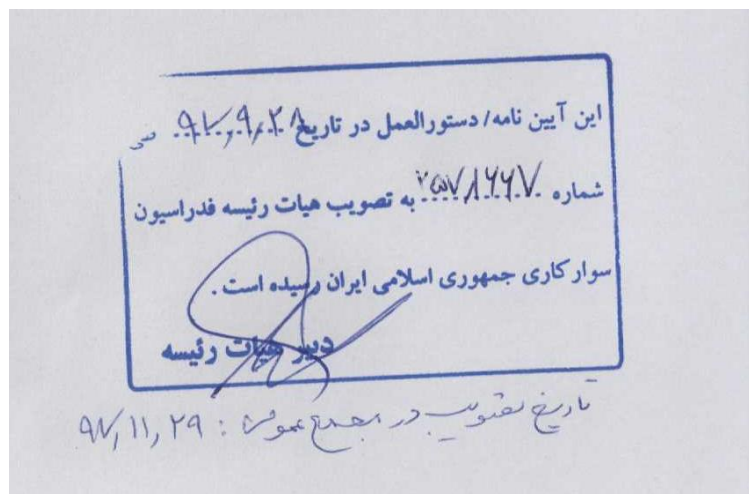 این آیین نامه/ دستورالعمل در تاریخ ۹۷,۹,۲۸
شماره ۲۵۷۸۶۶۷ به تصویب هیات رئیسه فدراسیون
سوارکاری جمهوری اسلامی ایران رسیده است .
دبیر هیات رئیسه
تاریخ تصویب در مجمع عمومی : ۹۷,۱۱,۲۹